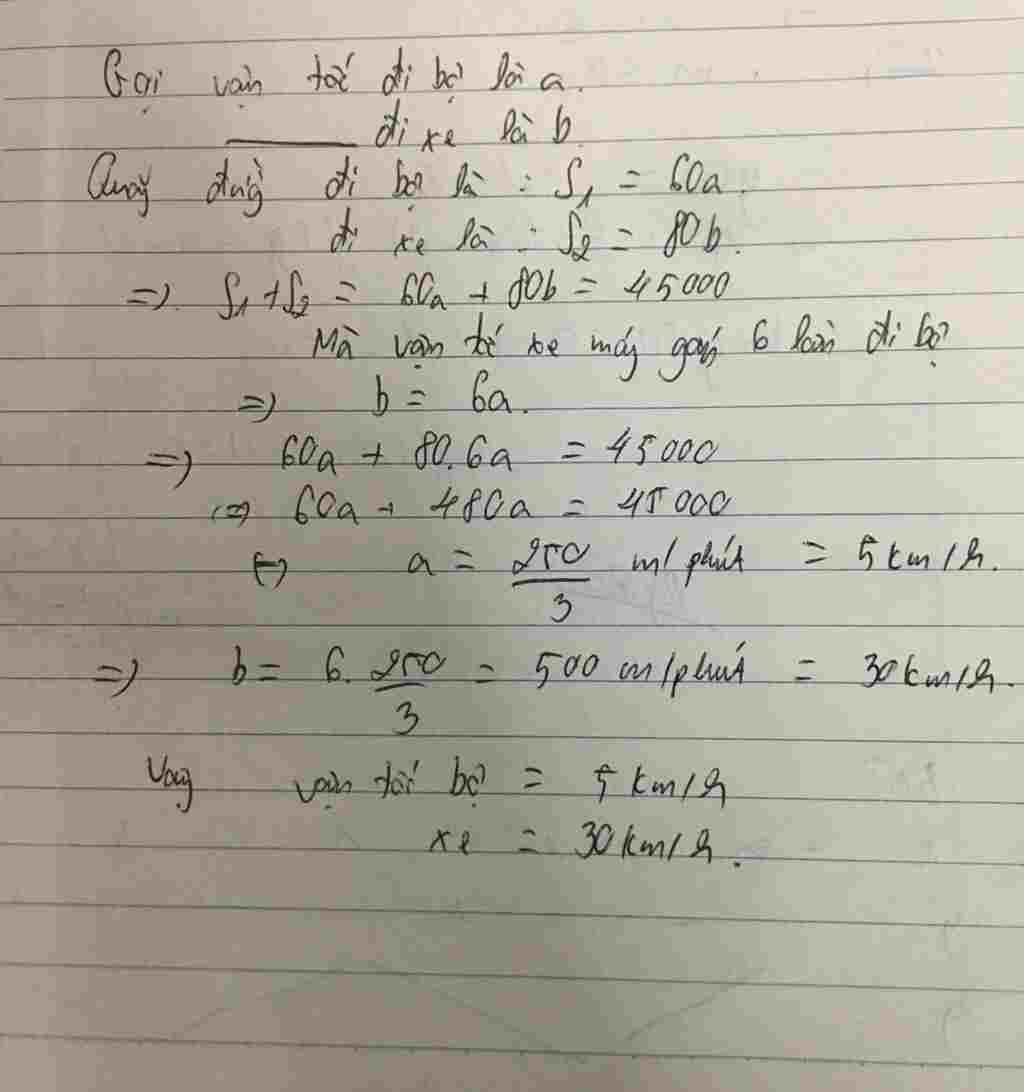 Gọi vận tốc đi bộ là a.
đi xe là b.
Quãng đường đi bộ là : S₁ = 60a.
đi xe là : S₂ = 80b.
=> S₁ + S₂ = 60a + 80b = 45000
Mà vận tốc xe máy gấp 6 lần đi bộ
=> b = 6a.
=> 60a + 80.6a = 45000
<=> 60a + 480a = 45000
<=> a = 250/3 m/phút = 5km/h.
=> b = 6. 250/3 = 500 m/phút = 30km/h.
Vậy vận tốc bộ = 5 km/h
xe = 30km/h.